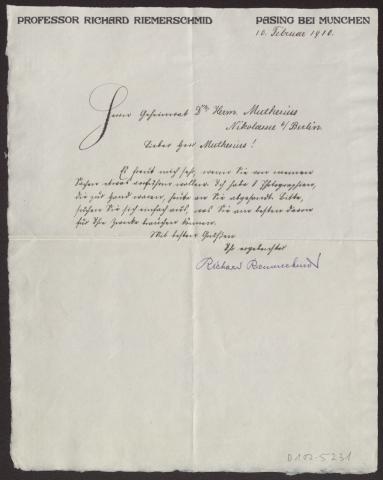 PROFESSOR RICHARD RIEMERSCHMID PASING BEI MÜNCHEN
10. Februar 1910.
Herrn Geheimrat Dr. Herm. Muthesius
Nikolassee b/Berlin
Lieber Herr Muthesius!
Es freut mich sehr, wenn Sie von meinen
Sachen etwas anführen wollen. Ich habe 8 Photographien,
die zur Hand waren, heute an Sie abgesandt. Bitte,
suchen Sie sich einfach aus, was Sie am besten davon
für Ihre Zwecke brauchen können.
Mit besten Grüßen
Ihr ergebenster
Richard Riemerschmid
D 102-5231